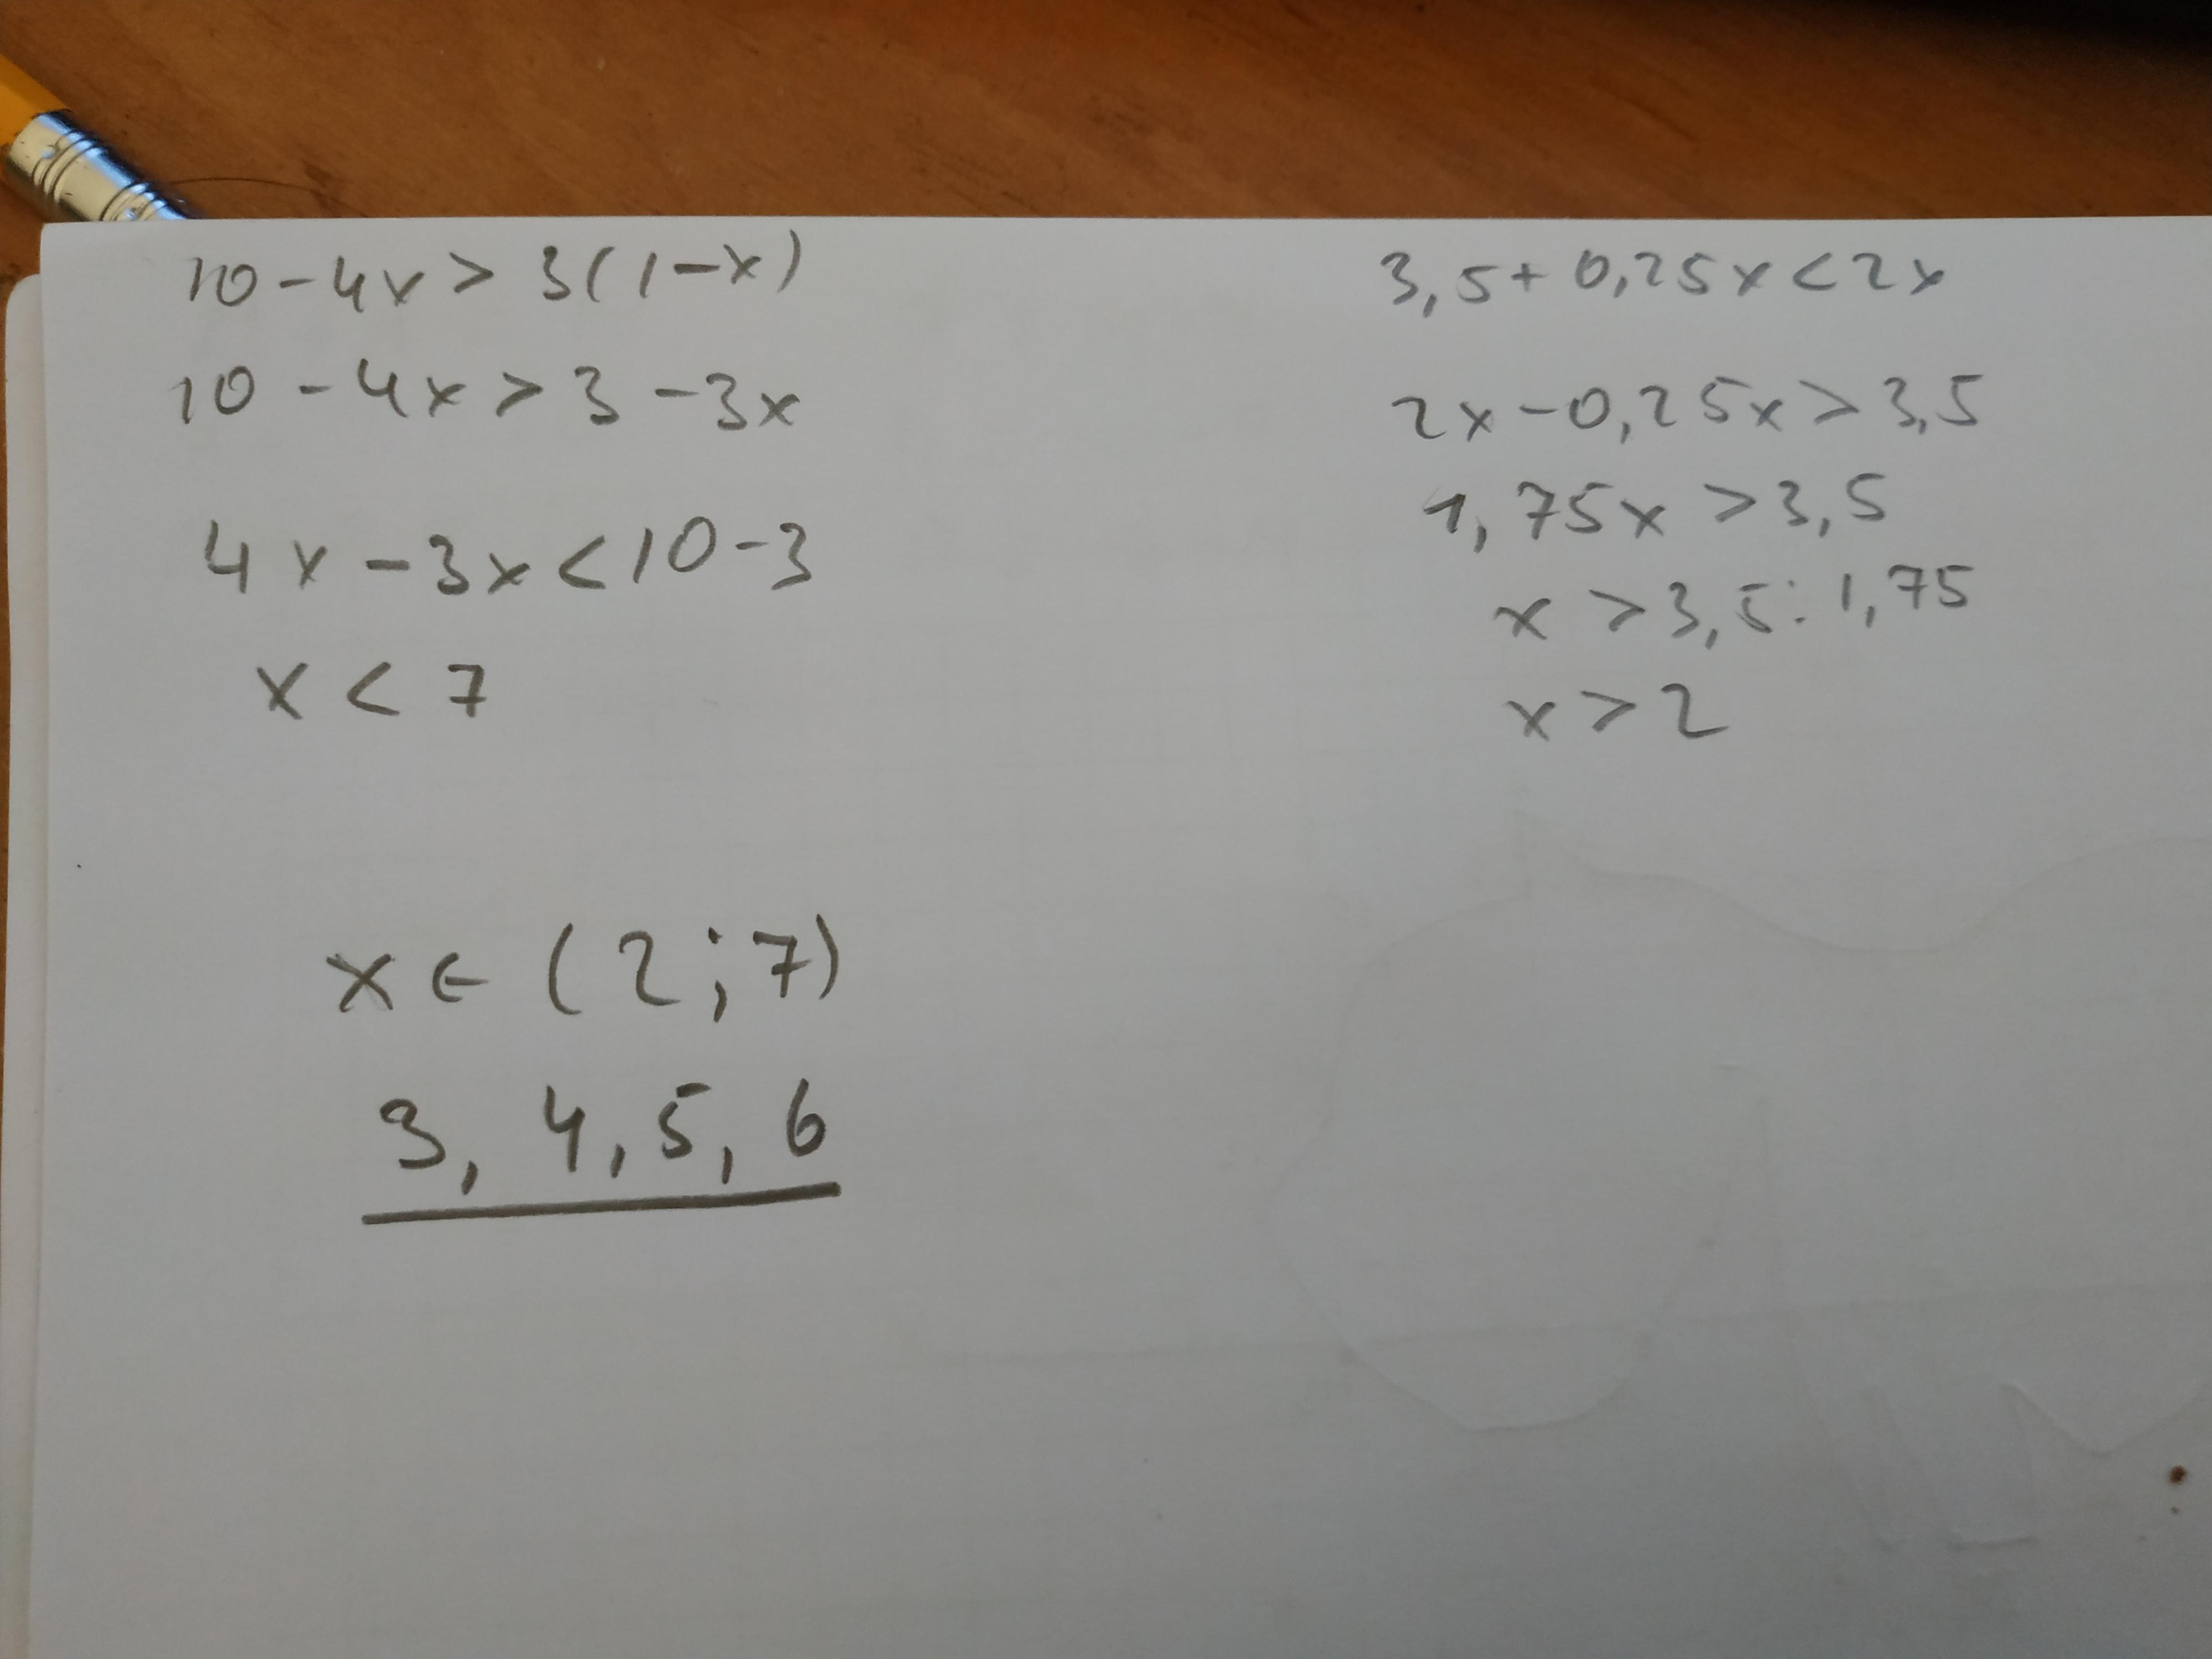 10 - 4x > 3(1-x)
10 - 4x > 3 - 3x
4x - 3x < 10 - 3
x < 7
3,5 + 0,25x < 2x
2x - 0,25x > 3,5
1,75x > 3,5
x > 3,5 : 1,75
x > 2
x ∈ (2; 7)
3, 4, 5, 6